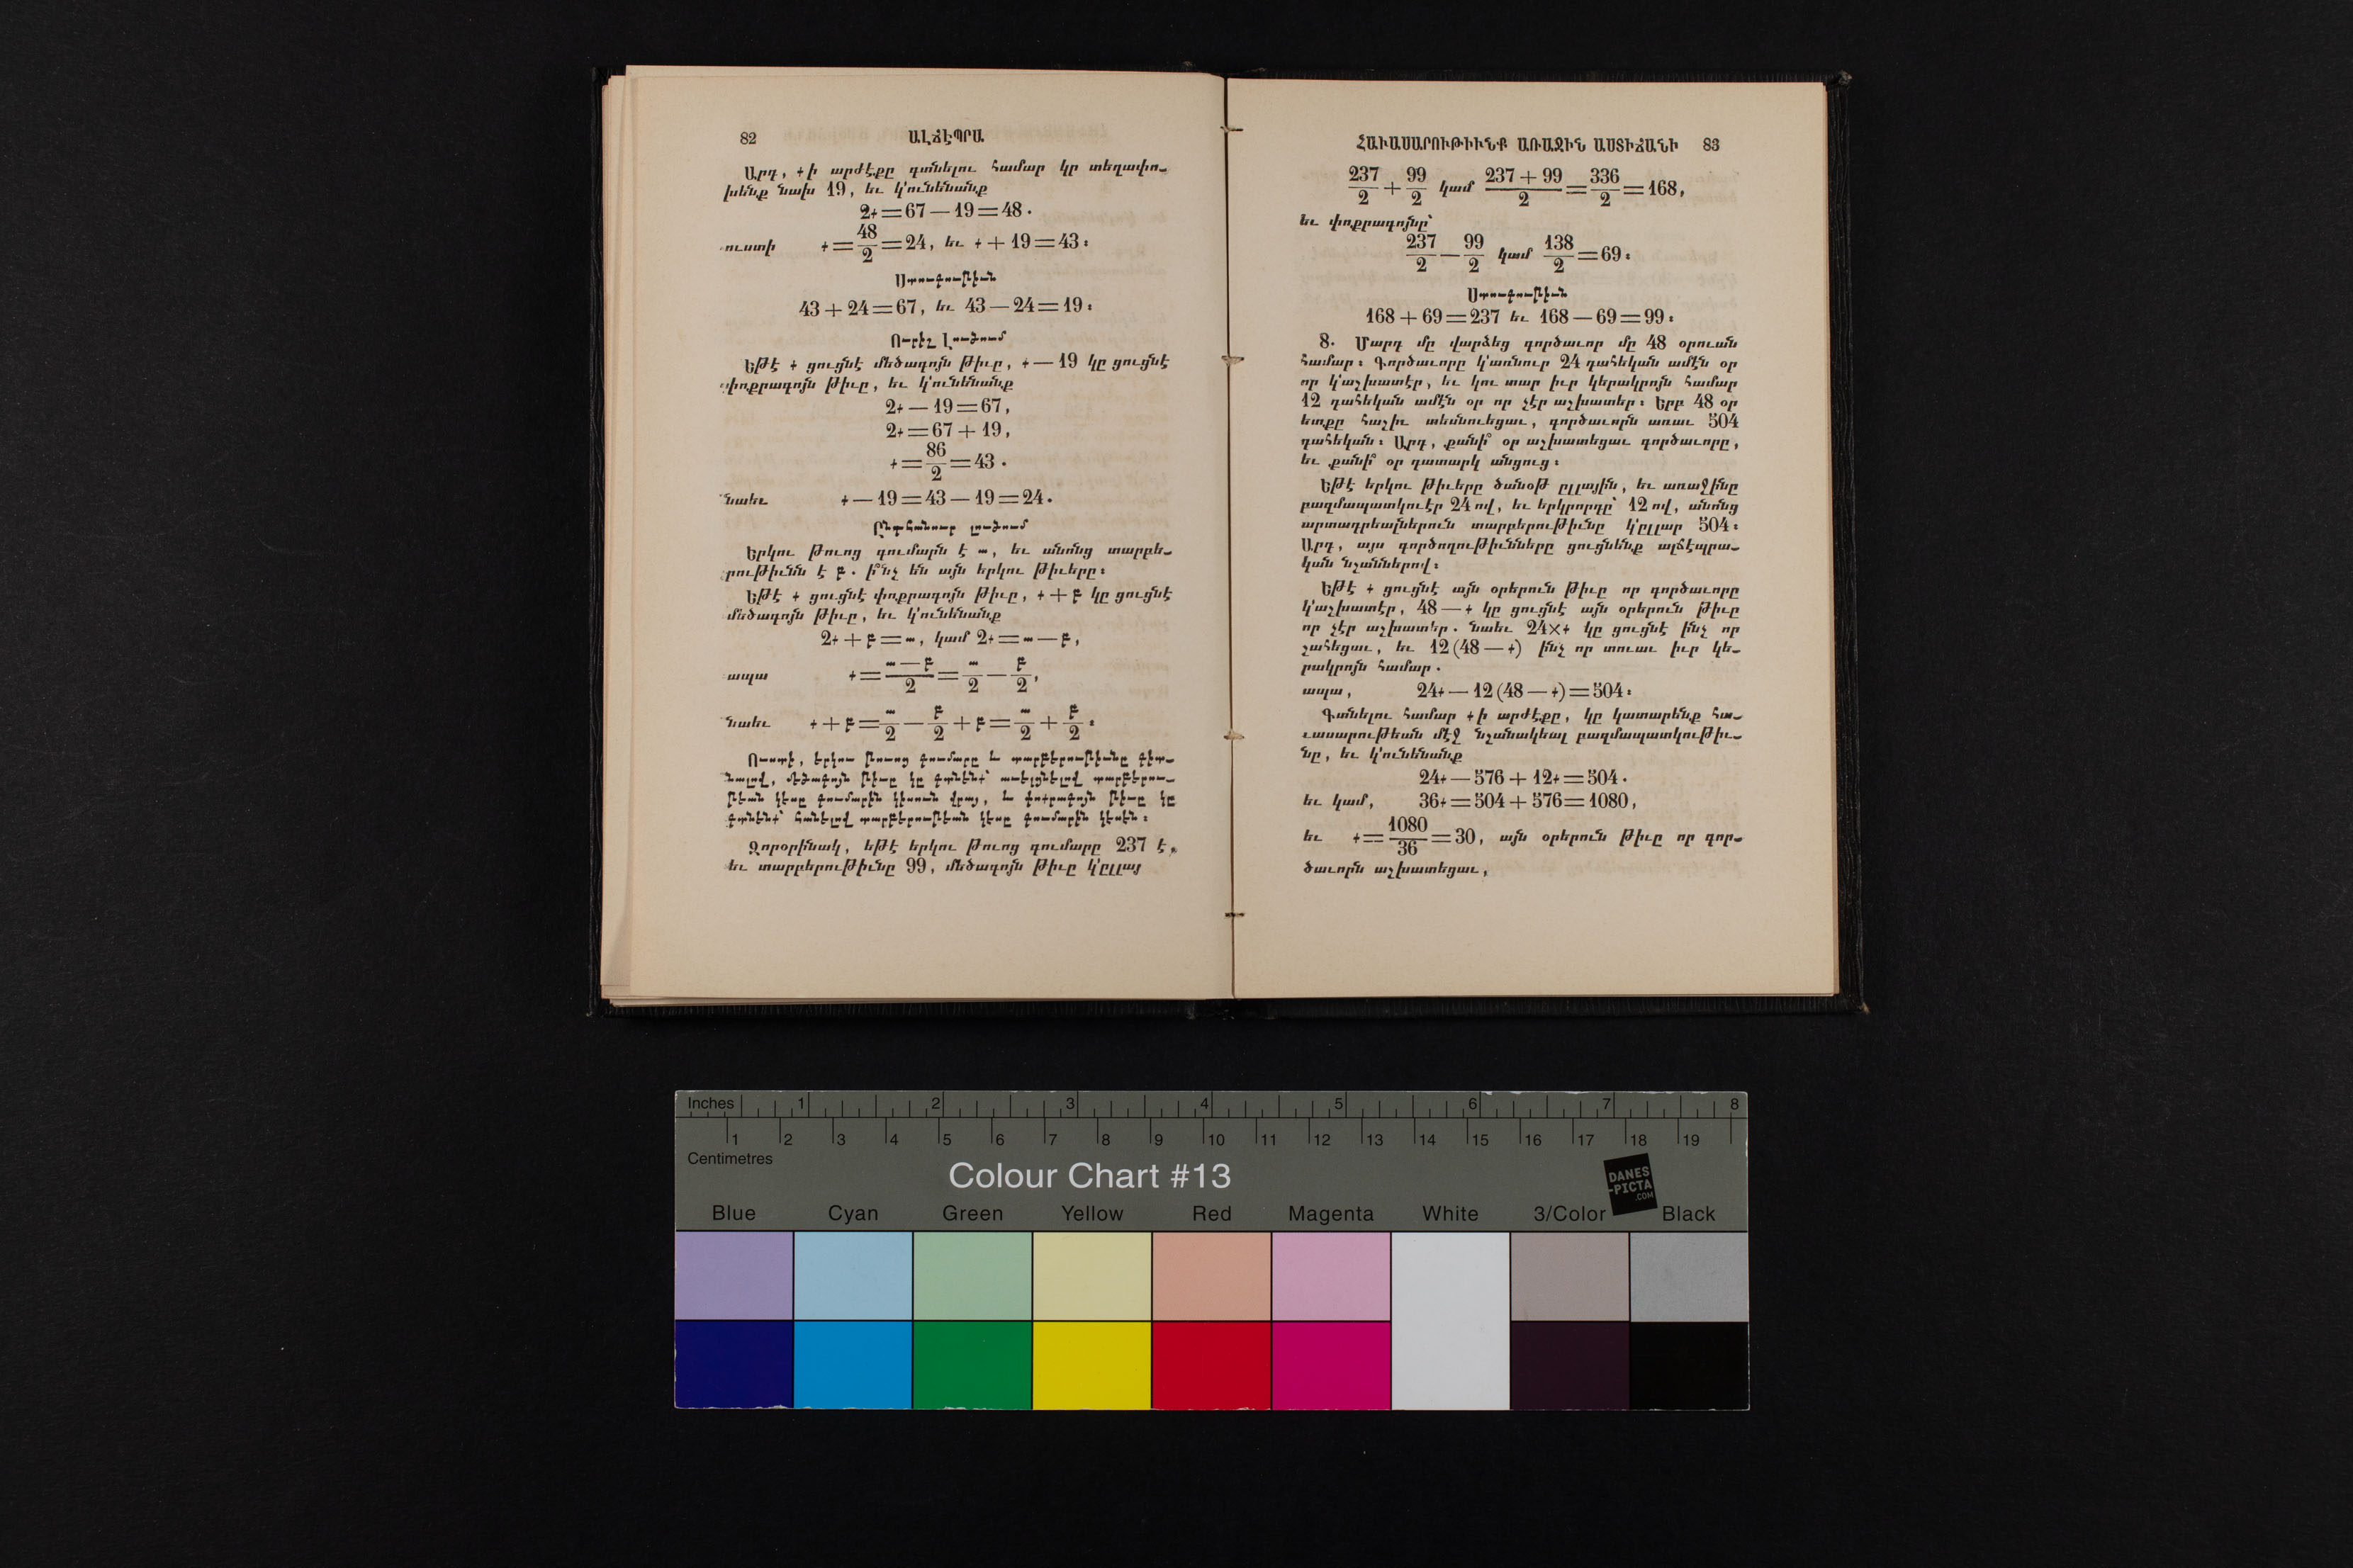 82 ԱԼՃԷՊՐԱ
Արդ, քի արժէքը գտնելու համար կը տեղափո-
խենք նախ 19, եւ կ'ունենանք
2ք = 67 — 19 = 48.
ուստի ք = 48/2 = 24, եւ ք + 19 = 43։
Ստուգութիւն
43 + 24 = 67, եւ 43 — 24 = 19։
Ուրիշ Լուծում
Եթէ ք ցուցնէ մեծագոյն թիւը, ք — 19 կը ցուցնէ
փոքրագոյն թիւը, եւ կ'ունենանք
2ք — 19 = 67,
2ք = 67 + 19,
ք = 86/2 = 43.
նաեւ ք — 19 = 43 — 19 = 24.
Ընդհանուր լուծում
Երկու թուոց գումարն է ա, եւ անոնց տարբե-
րութիւնն է բ. ի՞նչ են այն երկու թիւերը։
Եթէ ք ցուցնէ փոքրագոյն թիւը, ք + բ կը ցուցնէ
մեծագոյն թիւը, եւ կ'ունենանք
2ք + բ = ա, կամ 2ք = ա — բ,
ապա ք = ա — բ/2 = ա/2 — բ/2,
նաեւ ք + բ = ա/2 — բ/2 + բ = ա/2 + բ/2։
Ուստի, երկու թուոց գումարը և տարբերութիւնը գիտ-
նալով, մեծագոյն թիւը կը գտնենք՝ աւելցնելով տարբերու-
թեան կէսը գումարին կիսուն վրայ, և փոքրագոյն թիւը կը
գտնենք՝ հանելով տարբերութեան կէսը գումարին կէսէն։
Զորօրինակ, եթէ երկու թուոց գումարը 237 է,
եւ տարբերութիւնը 99, մեծագոյն թիւը կ'ըլլայ
ՀԱՒԱՍԱՐՈՒԹԻՒՆՔ ԱՌԱՋԻՆ ԱՍՏԻՃԱՆԻ 83
237/2 + 99/2 կամ 237 + 99/2 = 336/2 = 168,
եւ փոքրագոյնը՝
237/2 — 99/2 կամ 138/2 = 69։
Ստուգութիւն
168 + 69 = 237 եւ 168 — 69 = 99։
8. Մարդ մը վարձեց գործաւոր մը 48 օրուան
համար։ Գործաւորը կ'առնուր 24 դահեկան ամէն օր
որ կ'աշխատէր, եւ կու տար իւր կերակրոյն համար
12 դահեկան ամէն օր որ չէր աշխատեր։ Երբ 48 օր
ետքը հաշիւ տեսնուեցաւ, գործաւորն առաւ 504
դահեկան։ Արդ, քանի՞ օր աշխատեցաւ գործաւորը,
եւ քանի՞ օր դատարկ անցուց։
Եթէ երկու թիւերը ծանօթ ըլլային, եւ առաջինը
բազմապատկուէր 24 ով, եւ երկրորդը՝ 12 ով, անոնց
արտադրեալներուն տարբերութիւնը կ'ըլլար 504։
Արդ, այս գործողութիւնները ցուցնենք ալճէպրա-
կան նշաններով։
Եթէ ք ցուցնէ այն օրերուն թիւը որ գործաւորը
կ'աշխատէր, 48 — ք կը ցուցնէ այն օրերուն թիւը
որ չէր աշխատեր. նաեւ 24×ք կը ցուցնէ ինչ որ
շահեցաւ, եւ 12 (48 — ք) ինչ որ տուաւ իւր կե-
րակրոյն համար.
ապա, 24ք — 12 (48 — ք) = 504։
Գտնելու համար քի արժէքը, կը կատարենք հա-
ւասարութեան մէջ նշանակեալ բազմապատկութիւ-
նը, եւ կ'ունենանք
24ք — 576 + 12ք = 504.
եւ կամ, 36ք = 504 + 576 = 1080,
եւ ք = 1080/36 = 30, այն օրերուն թիւը որ գոր-
ծաւորն աշխատեցաւ,
Inches 1 2 3 4 5 6 7 8
1 2 3 4 5 6 7 8 9 10 11 12 13 14 15 16 17 18 19
Centimetres
Colour Chart #13
DANES
-PICTA
.COM
Blue Cyan Green Yellow Red Magenta White 3/Color Black